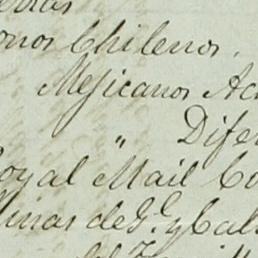 onos Chilenos.
Mejicanos Ac
" Dife
Royal Mail Co
Minas de G. y Cal